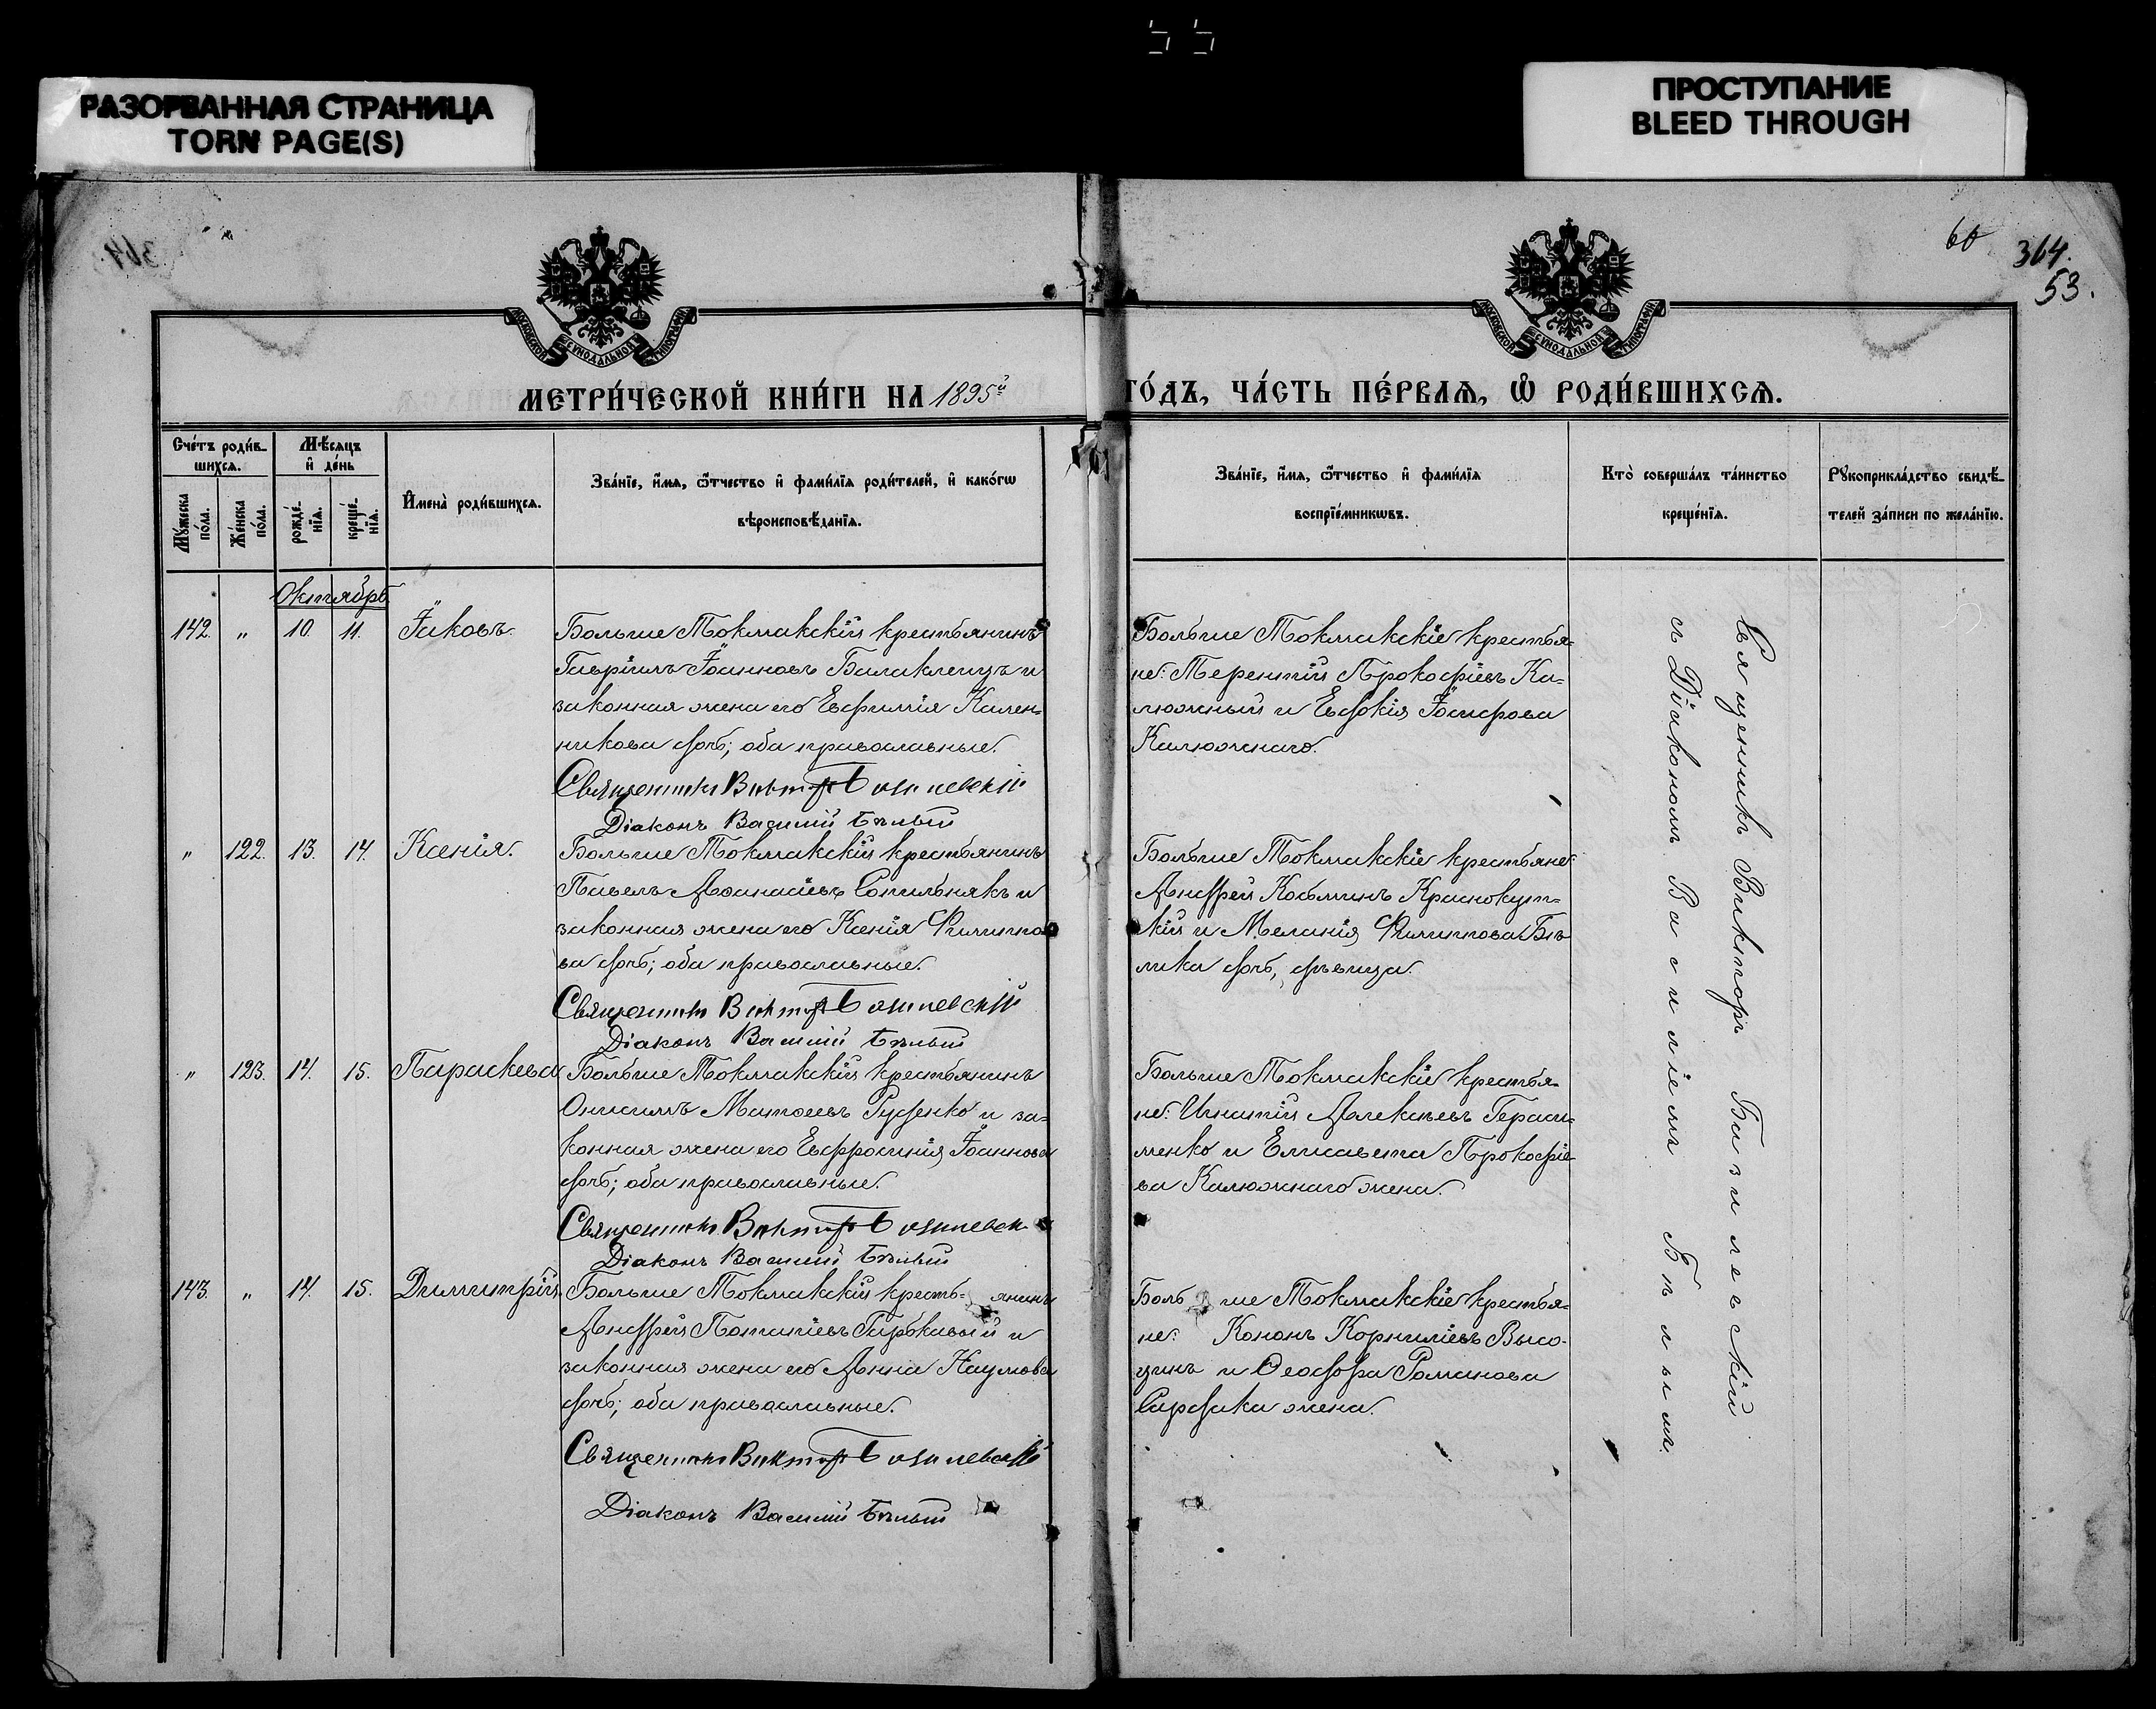 РАЗОРВАННАЯ СТРАНИЦА
TORN PAGE(S)
ПРОСТУПАНИЕ
BLEED THROUGH
60
364.
53.
МОСКОВСКОЙ СУНОДАЛЬНОЙ ТИПОГРАФІИ
МОСКОВСКОЙ СУНОДАЛЬНОЙ ТИПОГРАФІИ
МЕТРИ́ЧЕСКОЙ КНИ́ГИ НА 1895й
ГО́ДЪ, ЧА́СТЬ ПЕ́РВАѦ, Ѡ҆ РОДИ́ВШИХСѦ.
Сче́тъ роди́в-
шихсѧ.
Мѣ́сѧцъ
и҆ де́нь
Мꙋ́жеска
по́ла.
Же́нска
по́ла.
рожде́-
нїѧ.
креще́-
нїѧ.
И҆мена̀ роди́вшихсѧ.
Зва́нїе, и҆́мѧ, ѻ҆́тчество и҆ фами́лїѧ роди́телей, и҆ како́гѡ
вѣроисповѣ́данїѧ.
Зва́нїе, и҆́мѧ, ѻ҆́тчество и҆ фами́лїѧ
воспрїе́мникѡвъ.
Кто̀ соверша́лъ та́инство
креще́нїѧ.
Рꙋкоприкла́дство свидѣ́-
телей за́писи по жела́нїю.
Октябрь
142. " 10. 11. Іаковъ.
Больше Токмакскій крестьянинъ
Гавріилъ Іоанновъ Балаклецъ и
законная жена его Евфимія Кален-
никова дочь; оба православные.
Священникъ Викторъ Базилевскій
Діаконъ Василій Бѣлый
Больше Токмакскіе крестья-
не: Терентій Прокофіевъ Ка-
люжный и Евдокія Іосифова
Калюжнаго.
" 122. 13. 14. Ксенія.
Больше Токмакскій крестьянинъ
Павелъ Аѳанасіевъ Сопильнякъ и
законная жена его Ксенія Филиппо-
ва дочь; оба православные.
Священникъ Викторъ Базилевскій
Діаконъ Василій Бѣлый
Больше Токмакскіе крестьяне:
Андрей Косьминъ Краснокут-
скій и Меланія Филиппова Бѣ-
лика дочь, дѣвица.
" 123. 14. 15. Параскева
Больше Токмакскій крестьянинъ
Онисимъ Матѳеевъ Руденко и за-
конная жена его Евфросинія Іоаннова
дочь; оба православные.
Священникъ Викторъ Базилевск
Діаконъ Василій Бѣлый
Больше Токмакскіе крестья-
не: Игнатій Алексѣевъ Гераси-
менко и Елисавета Прокофіе-
ва Калюжнаго жена.
143. " 14. 15. Димитрій
Больше Токмакскій кресть- янинъ
Андрей Потапіевъ Гарькавый и
законная жена его Анна Наумова
дочь; оба православные.
Священникъ Викторъ Базилевскій
Діаконъ Василій Бѣлый
Боль ше Токмакскіе крестья-
не: Кононъ Корниліевъ Высо-
цинъ и Ѳеодора Романова
Сардака жена.
Священникъ Викторъ Базилевскій
съ Діакономъ Василіемъ Бѣлымъ.